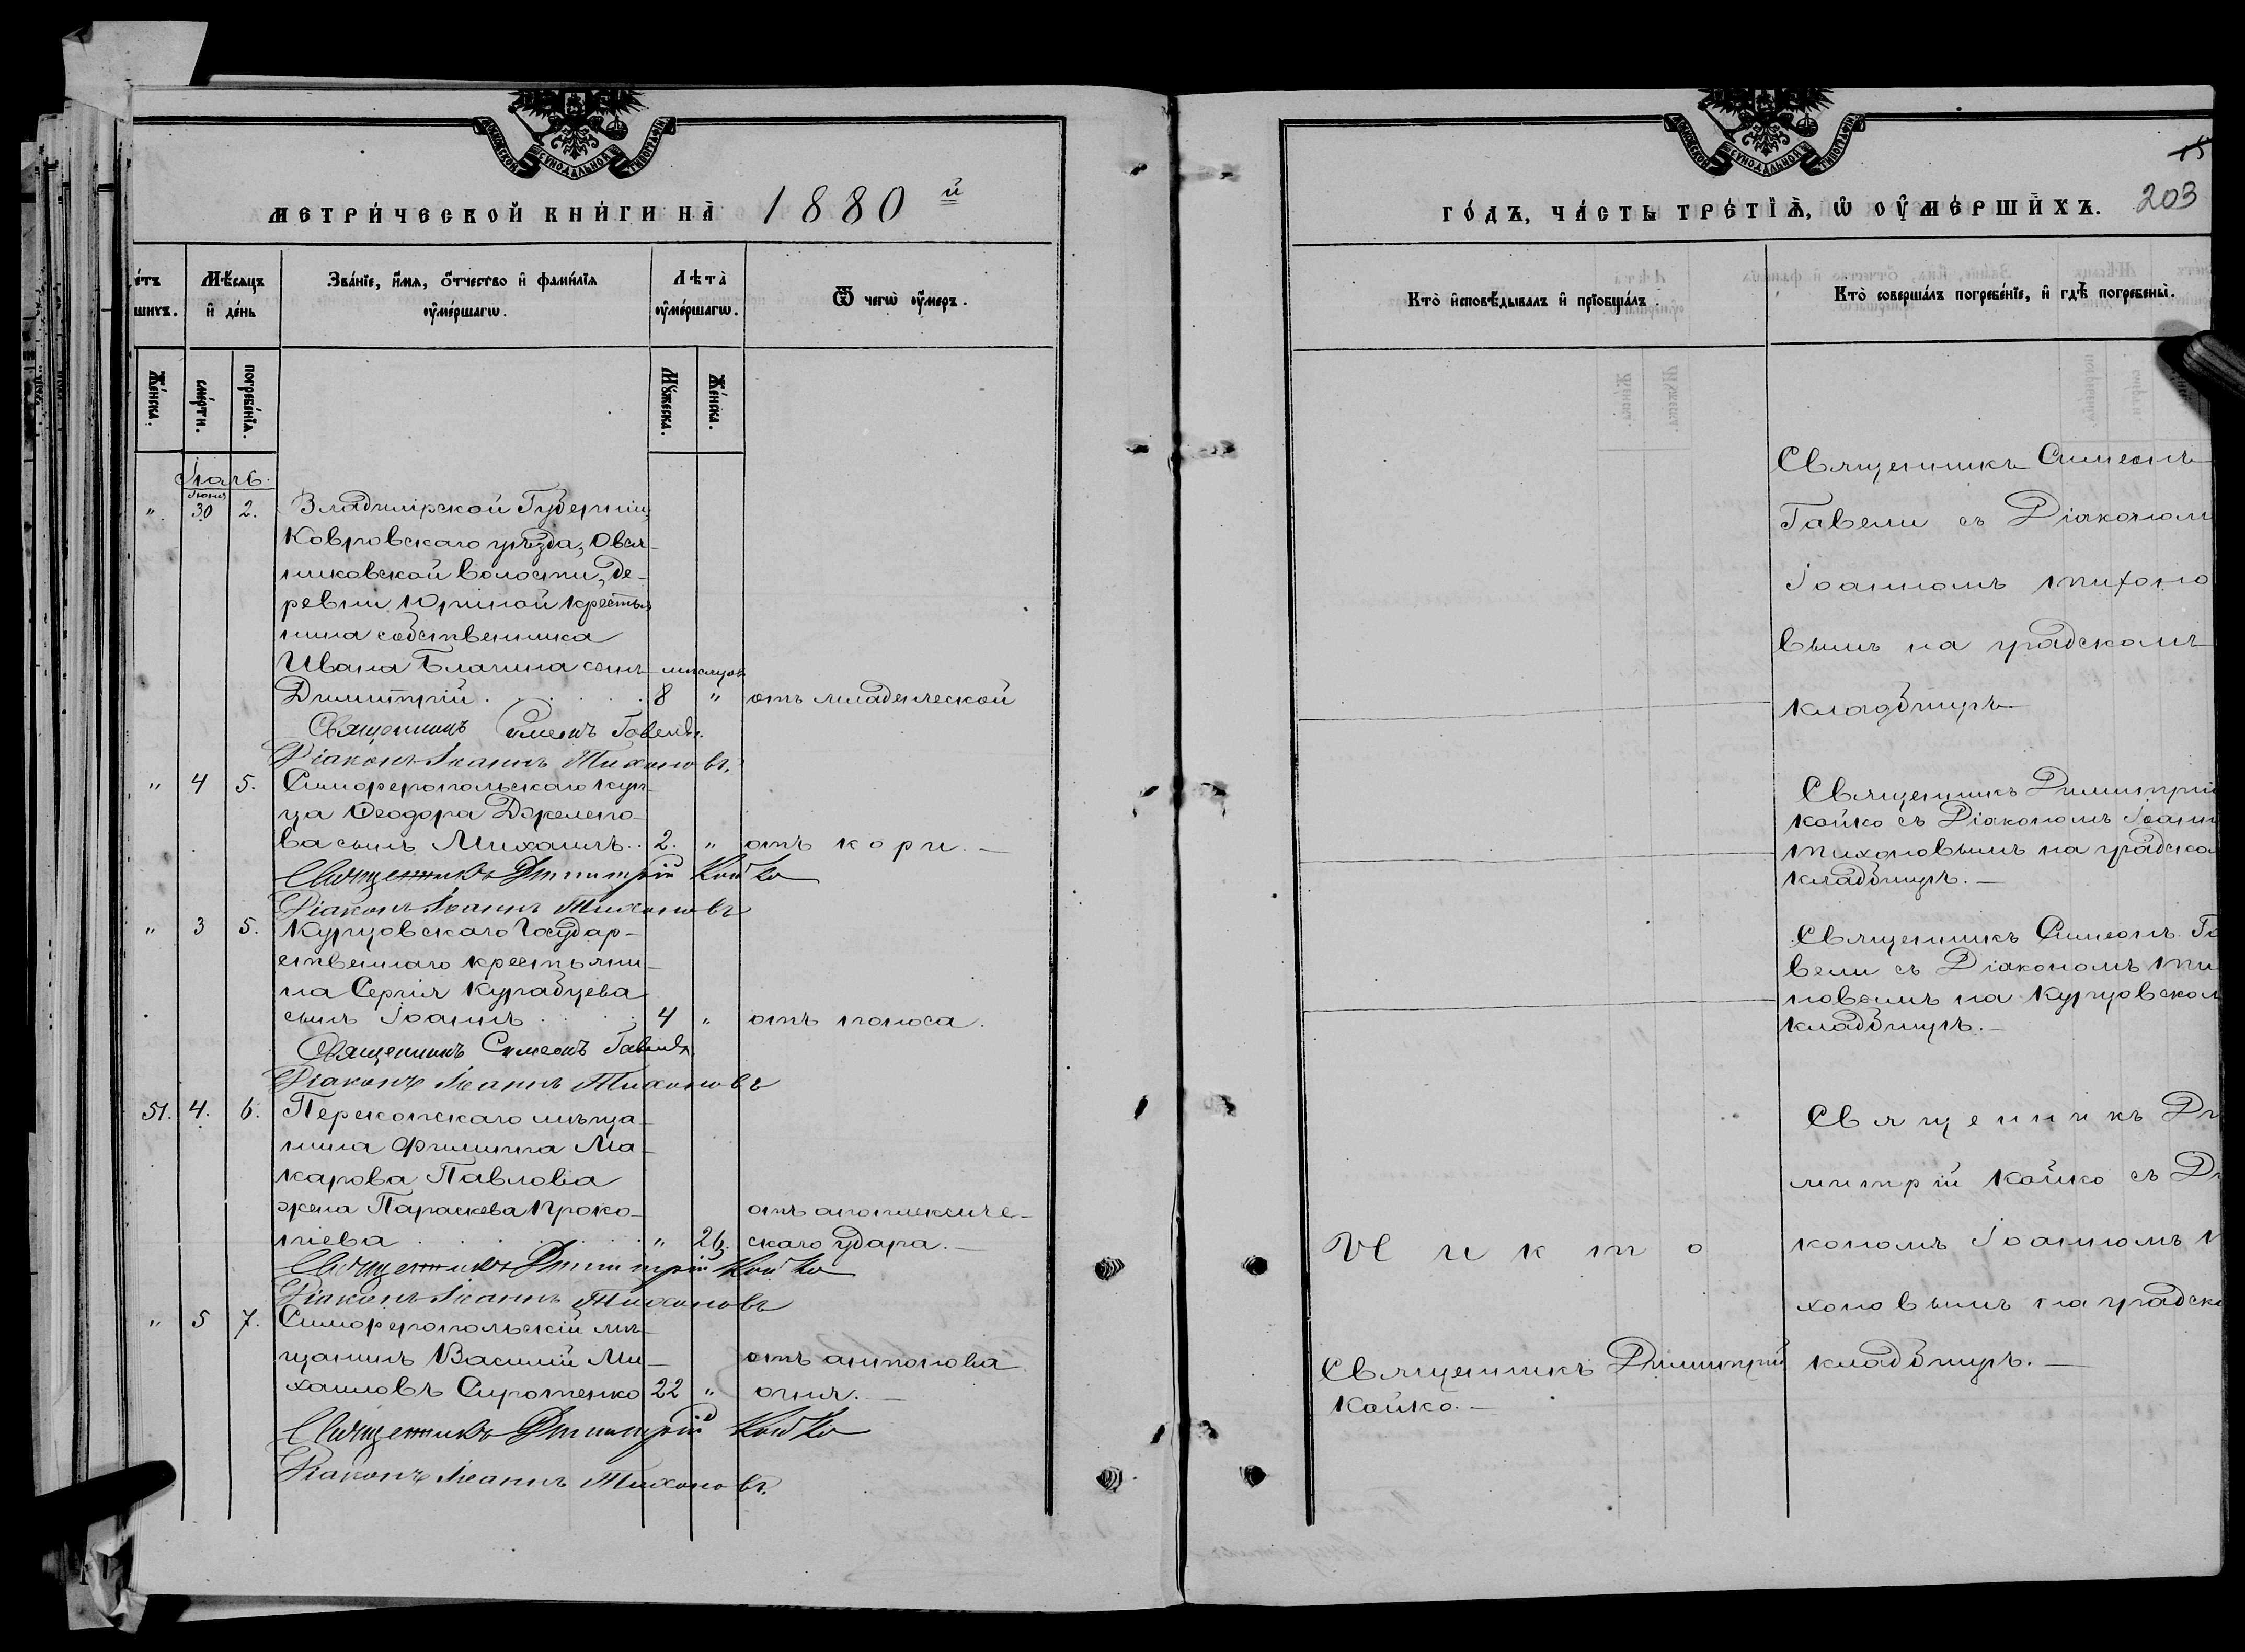 МОСКОВСКОЙ СѴНОДАЛЬНОЙ ТИПОГРАФІИ
МЕТРИ́ЧЕСКОЙ КНИ́ГИ НА̀ 1880 й
е́тъ
шихъ.
Мѣ́сяцъ
и҆ де́нь
Зва́нїе, и҆́мя, ѻ҆́тчество и҆ фами́лїя
ѹ҆ме́ршагѡ.
Лѣта̀
ѹ҆ме́ршагѡ.
Ѿ чегѡ̀ ѹ҆́меръ.
Же́нска.
сме́рти.
погребе́нїѧ.
Мѹ́жеска.
Же́нска.
Іюль.
Іюня
" 30 2. Владимірской Губерніи,
Ковровскаго уѣзда, Овся-
никовской волости, де-
ревни Юриной крестья
нина собственника
Ивана Блачина сынъ мѣсяцов
Димитрій . . . . 8 " отъ младенческой
Священникъ Симеонъ Гавели.
Діаконъ Іоаннъ Тихоновъ.
" 4 5. Симферопольскаго куп-
ца Ѳеодора Джелепо-
ва сынъ Михаилъ.. 2. " отъ кори.—
Священникъ Димитрій Койко
Діаконъ Іоаннъ Тихоновъ
" 3 5. Курцовскаго Государ-
ственнаго крестьяни-
на Сергія Курабцева
сынъ Іоаннъ . . . . 4 " отъ поноса.
Священникъ Симеонъ Гавели.
Діаконъ Іоаннъ Тихоновъ
51. 4. 6. Перекопскаго мѣща-
нина Филиппа Ма-
карова Павлова
жена Параскева Проко- отъ апоплексиче-
піева . . . . . . " 26. скаго удара.—
Священникъ Димитрій Койко
Діаконъ Іоаннъ Тихоновъ
" 5 7. Симферопольскій мѣ-
щанинъ Василій Ми- отъ антонова
хаиловъ Сиротенко 22 " огня.—
Священникъ Димитрій Койко
Діаконъ Іоаннъ Тихоновъ.
МОСКОВСКОЙ СѴНОДАЛЬНОЙ ТИПОГРАФІИ
15
ГО́ДЪ, ЧА́СТЬ ТРЕ́ТЇѦ, Ѡ҆ ОУ҆МЕ́РШИХЪ. 203
Кто̀ и҆сповѣ́дывалъ и҆ прїобща́лъ.
Кто̀ соверша́лъ погребе́нїе, и҆ гдѣ̀ погребены̀.
Священникъ Симеонъ
Гавели съ Діаконом
Іоанномъ Тихоно
вымъ на градскомъ
кладбищѣ
Священникъ Димитрій
Койко съ Діакономъ Іоанн
Тихоновымъ на градско
кладбищѣ.—
Священникъ Симеонъ Га
вели съ Діакономъ Ти
новымъ на Курцовском
кладбищѣ.—
Священникъ Ди
митрій Койко съ Ді
Никто кономъ Іоанномъ Т
хоновымъ на градско
Священникъ Димитрій кладбищѣ.—
Койко.—